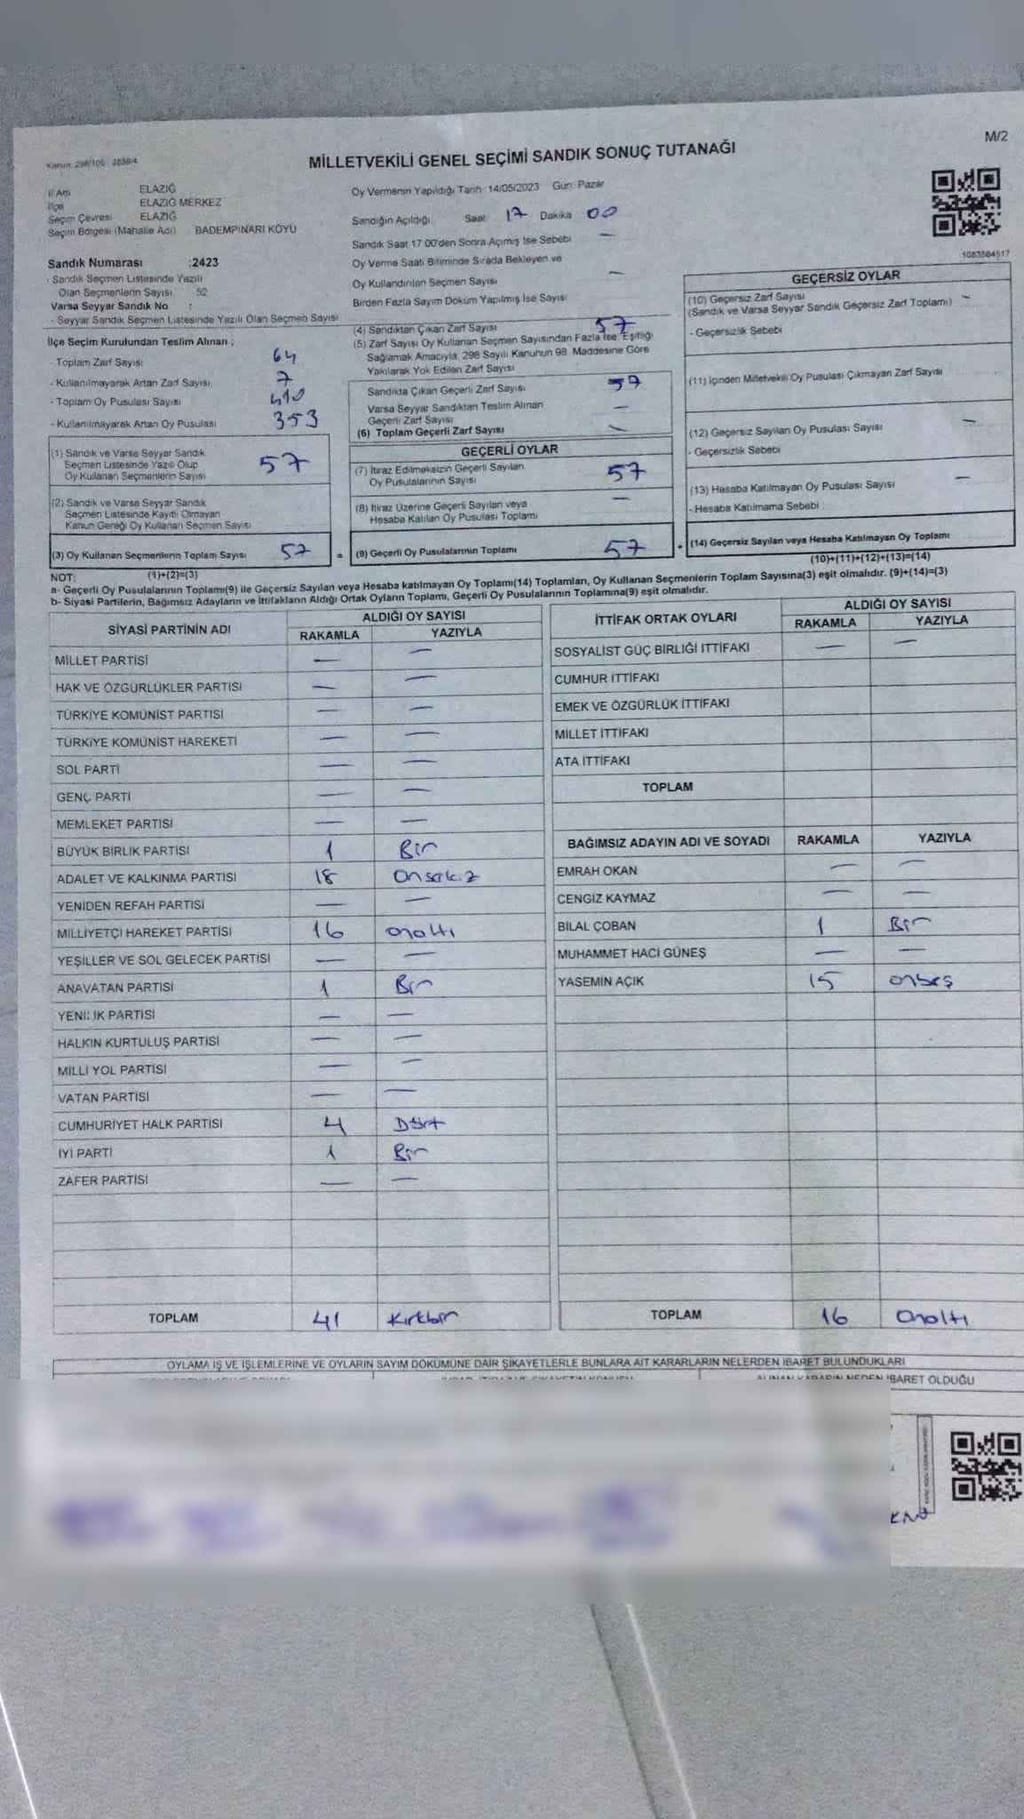 M/2
Kanun: 298/105 - 2839/4
MİLLETVEKİLİ GENEL SEÇİMİ SANDIK SONUÇ TUTANAĞI
İl Adı ELAZIĞ
İlçe ELAZIĞ MERKEZ
Seçim Çevresi ELAZIĞ
Seçim Bölgesi (Mahalle Adı) BADEMPINARI KÖYÜ
Sandık Numarası :2423
- Sandık Seçmen Listesinde Yazılı
Olan Seçmenlerin Sayısı
Varsa Seyyar Sandık No :
- Seyyar Sandık Seçmen Listesinde Yazılı Olan Seçmen Sayısı
Oy Vermenin Yapıldığı Tarih: 14/05/2023 Gün: Pazar
Sandığın Açıldığı Saat 17 Dakika 00
Sandık Saat 17 00'den Sonra Açılmış İse Sebebi —
Oy Verme Saati Bitiminde Sırada Bekleyen ve
Oy Kullandırılan Seçmen Sayısı —
Birden Fazla Sayım Döküm Yapılmış İse Sayısı
1083584517
İlçe Seçim Kurulundan Teslim Alınan ;
- Toplam Zarf Sayısı 64
- Kullanılmayarak Artan Zarf Sayısı 7
- Toplam Oy Pusulası Sayısı 410
- Kullanılmayarak Artan Oy Pusulası 353
(1) Sandık ve Varsa Seyyar Sandık
Seçmen Listesinde Yazılı Olup
Oy Kullanan Seçmenlerin Sayısı 57
(2) Sandık ve Varsa Seyyar Sandık
Seçmen Listesinde Kayıtlı Olmayan
Kanun Gereği Oy Kullanan Seçmen Sayısı
(3) Oy Kullanan Seçmenlerin Toplam Sayısı 57 =
(1)+(2)=(3)
(4) Sandıktan Çıkan Zarf Sayısı 57
(5) Zarf Sayısı Oy Kullanan Seçmen Sayısından Fazla İse, Eşitliği
Sağlamak Amacıyla, 298 Sayılı Kanunun 98. Maddesine Göre
Yakılarak Yok Edilen Zarf Sayısı
Sandıkta Çıkan Geçerli Zarf Sayısı 57
Varsa Seyyar Sandıktan Teslim Alınan
Geçerli Zarf Sayısı —
(6) Toplam Geçerli Zarf Sayısı —
GEÇERLİ OYLAR
(7) İtiraz Edilmeksizin Geçerli Sayılan
Oy Pusulalarının Sayısı 57
(8) İtiraz Üzerine Geçerli Sayılan veya
Hesaba Katılan Oy Pusulası Toplamı —
(9) Geçerli Oy Pusulalarının Toplamı 57 +
GEÇERSİZ OYLAR
(10) Geçersiz Zarf Sayısı —
(Sandık ve Varsa Seyyar Sandık Geçersiz Zarf Toplamı)
- Geçersizlik Sebebi
(11) İçinden Milletvekili Oy Pusulası Çıkmayan Zarf Sayısı
(12) Geçersiz Sayılan Oy Pusulası Sayısı —
- Geçersizlik Sebebi
(13) Hesaba Katılmayan Oy Pusulası Sayısı —
- Hesaba Katılmama Sebebi :
(14) Geçersiz Sayılan veya Hesaba Katılmayan Oy Toplamı
(10)+(11)+(12)+(13)=(14)
NOT:
a- Geçerli Oy Pusulalarının Toplamı(9) ile Geçersiz Sayılan veya Hesaba katılmayan Oy Toplamı(14) Toplamları, Oy Kullanan Seçmenlerin Toplam Sayısına(3) eşit olmalıdır. (9)+(14)=(3)
b- Siyasi Partilerin, Bağımsız Adayların ve İttifakların Aldığı Ortak Oyların Toplamı, Geçerli Oy Pusulalarının Toplamına(9) eşit olmalıdır.
SİYASİ PARTİNİN ADI ALDIĞI OY SAYISI
RAKAMLA YAZIYLA
MİLLET PARTİSİ — —
HAK VE ÖZGÜRLÜKLER PARTİSİ — —
TÜRKİYE KOMÜNİST PARTİSİ — —
TÜRKİYE KOMÜNİST HAREKETİ — —
SOL PARTİ — —
GENÇ PARTİ — —
MEMLEKET PARTİSİ — —
BÜYÜK BİRLİK PARTİSİ 1 Bir
ADALET VE KALKINMA PARTİSİ 18 Onsekiz
YENİDEN REFAH PARTİSİ — —
MİLLİYETÇİ HAREKET PARTİSİ 16 onaltı
YEŞİLLER VE SOL GELECEK PARTİSİ — —
ANAVATAN PARTİSİ 1 Bir
YENİLİK PARTİSİ — —
HALKIN KURTULUŞ PARTİSİ — —
MİLLİ YOL PARTİSİ — —
VATAN PARTİSİ — —
CUMHURİYET HALK PARTİSİ 4 Dört
İYİ PARTİ 1 Bir
ZAFER PARTİSİ — —
TOPLAM 41 Kırkbir
İTTİFAK ORTAK OYLARI ALDIĞI OY SAYISI
RAKAMLA YAZIYLA
SOSYALİST GÜÇ BİRLİĞİ İTTİFAKI — —
CUMHUR İTTİFAKI
EMEK VE ÖZGÜRLÜK İTTİFAKI
MİLLET İTTİFAKI
ATA İTTİFAKI
TOPLAM
BAĞIMSIZ ADAYIN ADI VE SOYADI RAKAMLA YAZIYLA
EMRAH OKAN — —
CENGİZ KAYMAZ — —
BİLAL ÇOBAN 1 Bir
MUHAMMET HACİ GÜNEŞ — —
YASEMİN AÇIK 15 onbeş
TOPLAM 16 Onaltı
OYLAMA İŞ VE İŞLEMLERİNE VE OYLARIN SAYIM DÖKÜMÜNE DAİR ŞİKAYETLERLE BUNLARA AİT KARARLARIN NELERDEN İBARET BULUNDUKLARI
ALINAN KARARIN NEDEN İBARET OLDUĞU